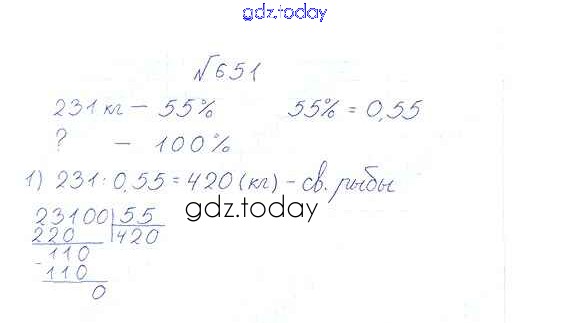 gdz.today
№651
231 кг – 55% 55% = 0,55
? – 100%
1) 231 : 0,55 = 420 (кг) – св. рыбы
23100 55
220 420
110
-110
0
gdz.today